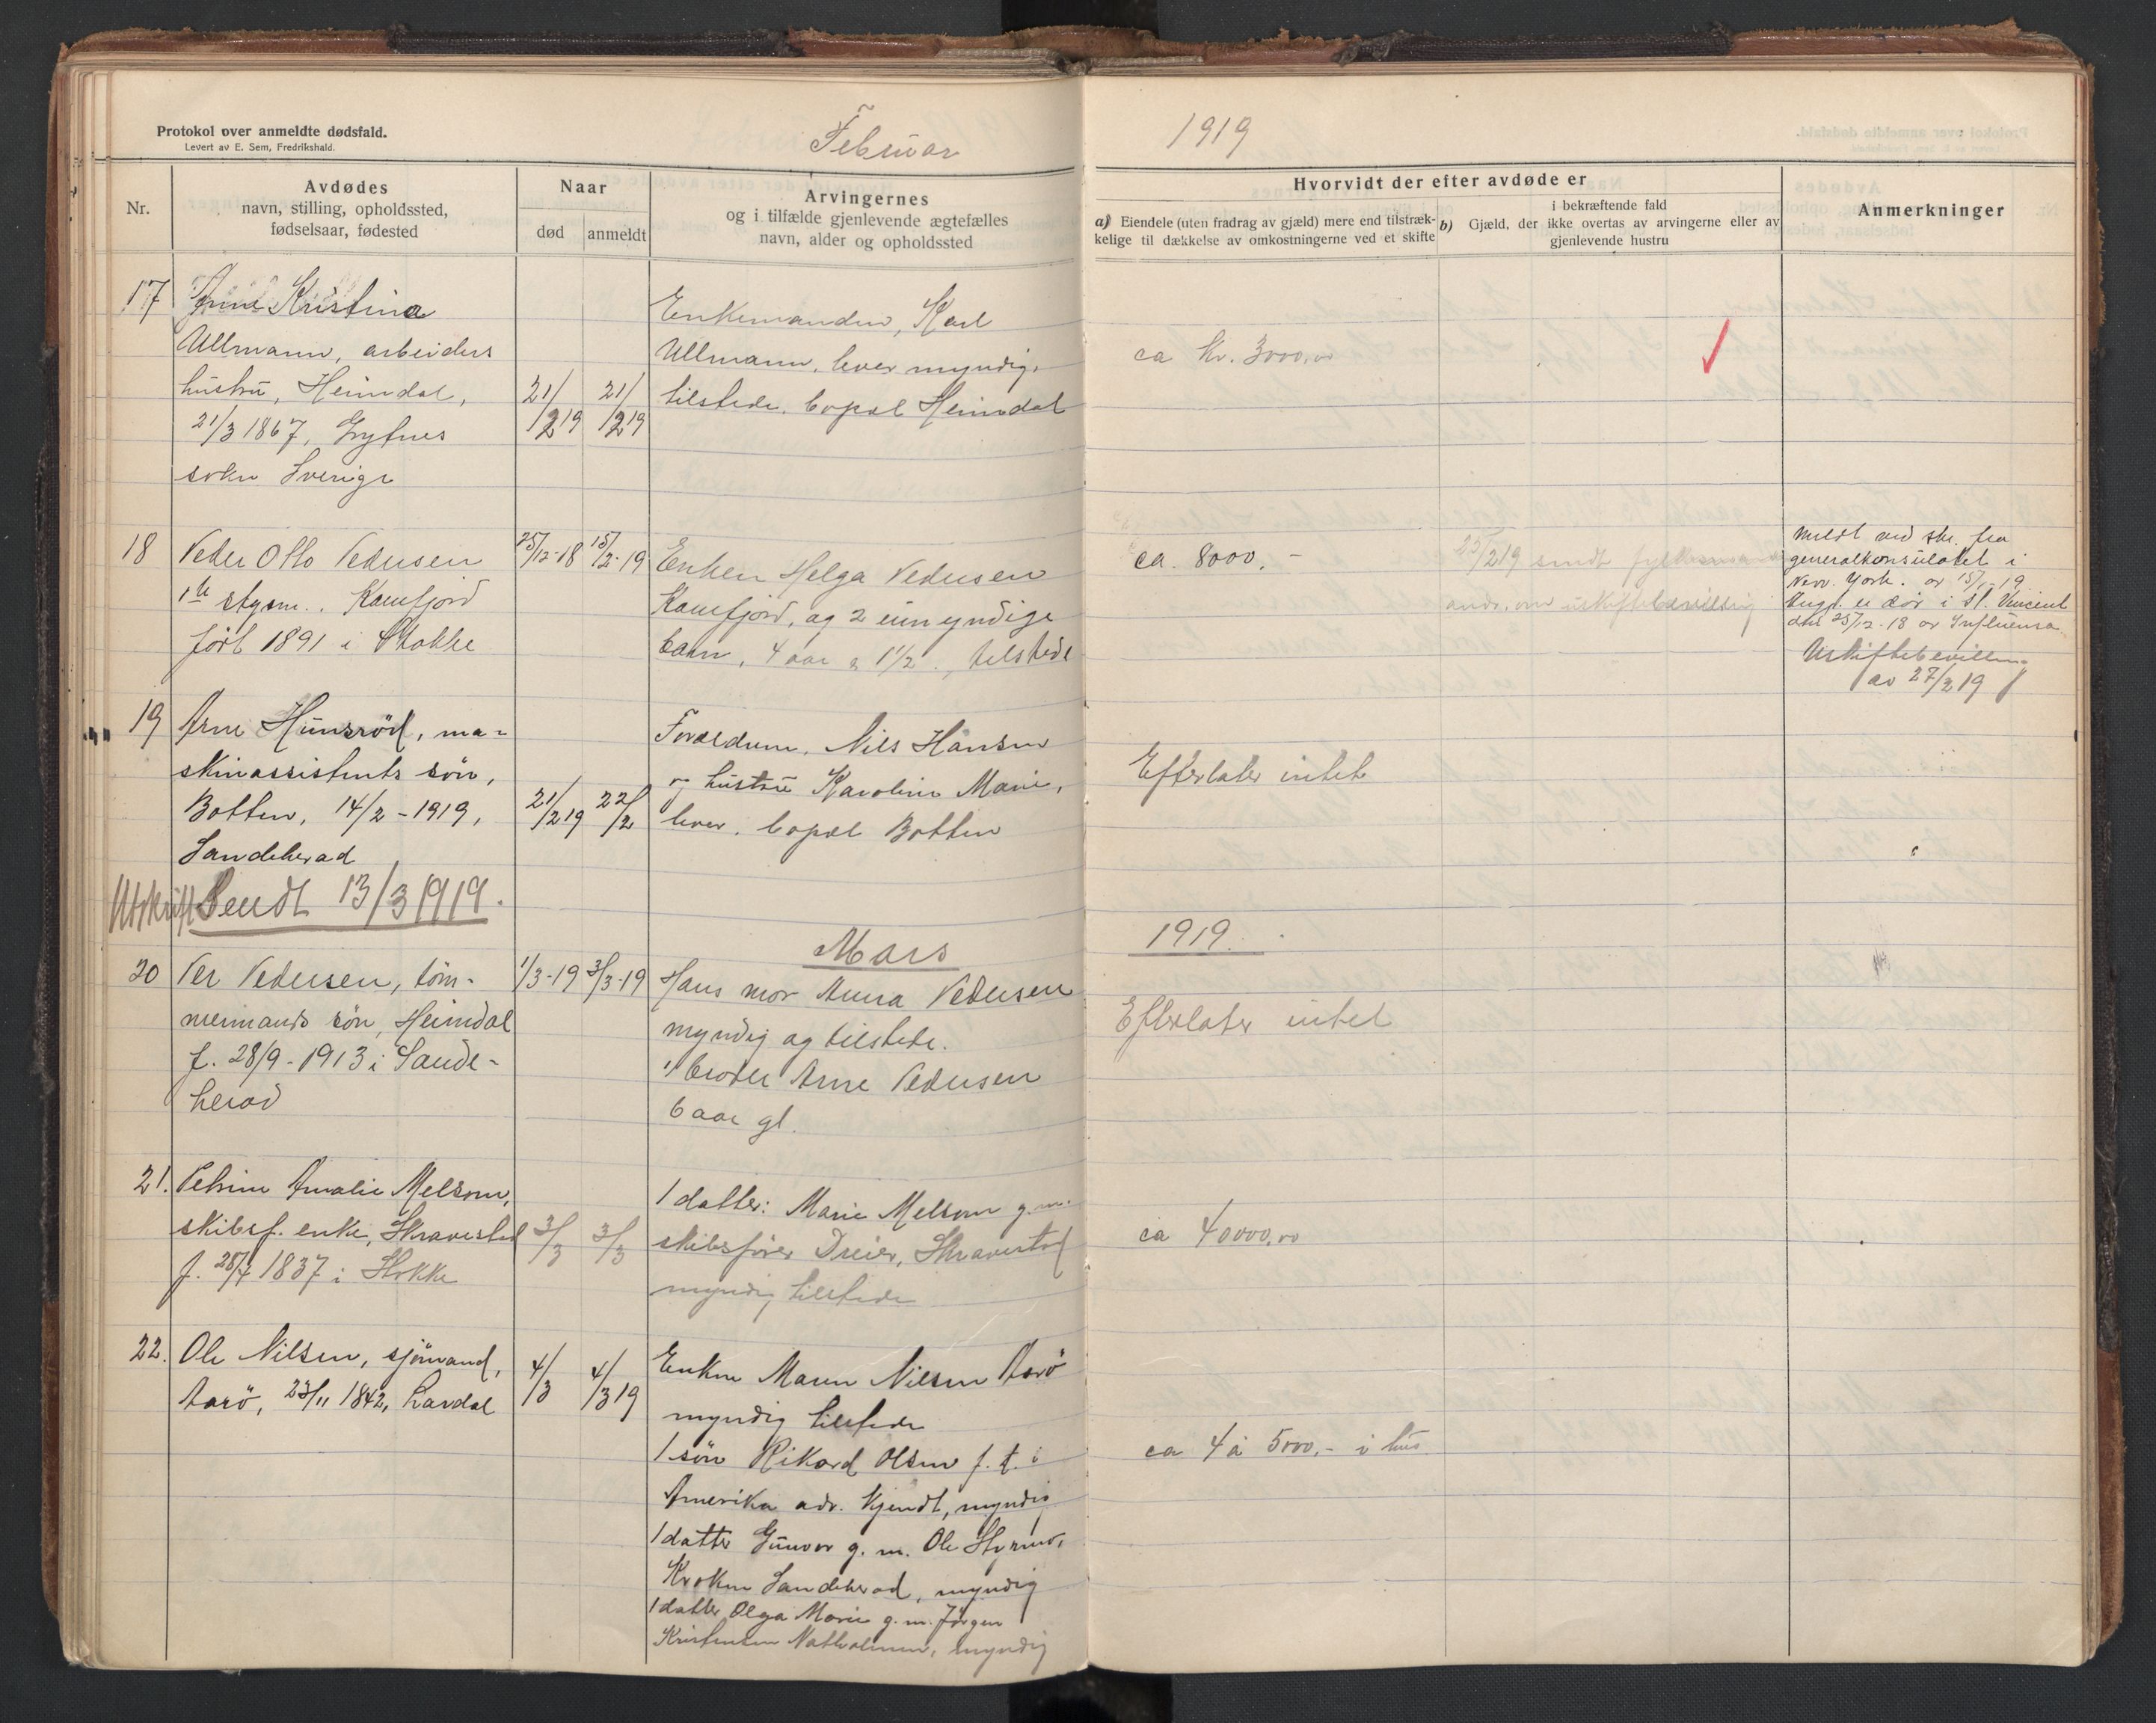 Protokol over anmeldte dødsfald.
Levert av E. Sem, Fredrikshald.
Februar
1919
Nr.
Avdødes
navn, stilling, opholdssted,
fødselsaar, fødested
Naar
død
anmeldt
Arvingernes
og i tilfælde gjenlevende ægtefælles
navn, alder og opholdssted
Hvorvidt der efter avdøde er
a) Eiendele (uten fradrag av gjæld) mere end tilstræk-
kelige til dækkelse av omkostningerne ved et skifte
i bekræftende fald
b) Gjæld, der ikke overtas av arvingerne eller av
gjenlevende hustru
Anmerkninger
17
Anne Kristina
Ullmann, arbeiders
hustru, Heimdal,
21/3 1867, Grytnes
sokn Sverige
21/2 19
21/2 19
Enkemanden, Karl
Ullmann, lever myndig,
tilstede, bopæl Heimdal
ca kr. 3000,00
18
Peder Otto Pedersen
1ste styrm., Kamfjord
født 1891 i Stokke
25/12-18
15/2-19
Enken Helga Pedersen
Kamfjord, og 2 umyndige
barn, 4 aar & 1 1/2, tilstede
ca. 8000,-
25/2 19 sendt
andr. om uskiftebevilling
Meldt ved skr. fra
generalkonsulatet i
New York. av 15/1-19
er død i St. Vincent
den 25/12-18 av Influensa.
Uskiftebevilling
av 27/2 19
19
Arne Hunsrød, ma-
skinassistents søn,
Botten, 14/2-1919,
Sandeherad
21/2 19
22/2
Forældrene, Nils Hansen
og hustru Karoline Marie,
lever. bopæl Botten
Efterlater intet
Utskrift Sendt 13/3 1919.
Mars
1919.
20
Per Pedersen, tøm-
mermands søn, Heimdal
f. 28/9-1913 i Sande-
herad
1/3-19
3/3-19
Hans mor Anna Pedersen
myndig og tilstede.
1 broder Arne Pedersen
6 aar gl.
Efterlater intet
21.
Petrine Amalie Melsom,
skibsf. enke, Skravestad
f. 28/4 1837 i Stokke
3/3
3/3
1 datter: Marie Melsom g.m.
skibsfører Dreier, Skravestad
myndig tilstede
ca 40000,00
22.
Ole Nilsen, sjømand,
Aarø, 23/11 1842, Lardal
4/3
4/3 19
Enken Maren Nilsen Aarø
myndig tilstede
1 søn Rikard Olsen f. t. i
Amerika adr. kjendt, myndig
1 datter Gunvor g. m. Ole Styrmo,
Kroken Sandeherad, myndig
1 datter Olga Marie g. m. Jørgen
Kristensen Natholmen, myndig
ca 4 à 5000,- i hus